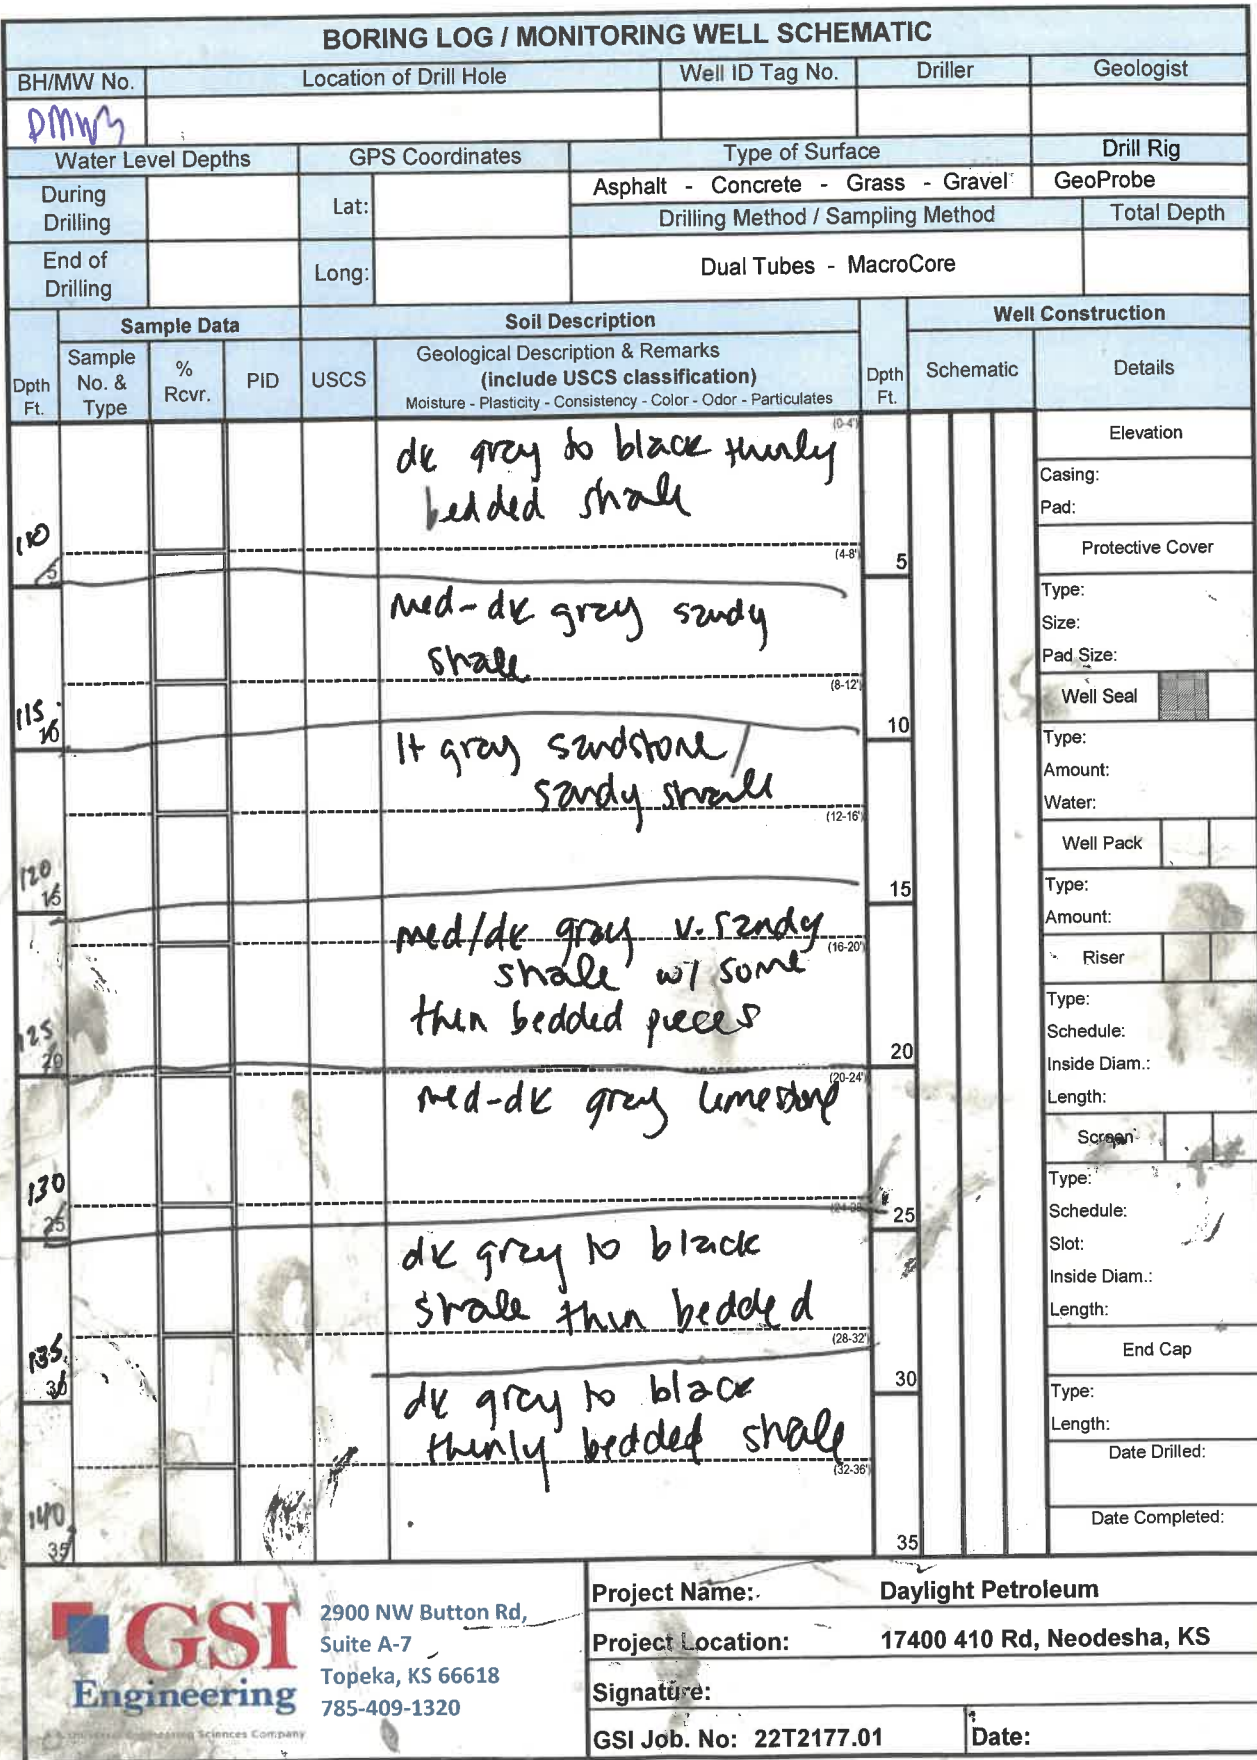 BORING LOG / MONITORING WELL SCHEMATIC
BH/MW No. Location of Drill Hole Well ID Tag No. Driller Geologist
DMW3
Water Level Depths GPS Coordinates Type of Surface Drill Rig
During Drilling Lat: Asphalt - Concrete - Grass - Gravel GeoProbe
Drilling Method / Sampling Method Total Depth
End of Drilling Long: Dual Tubes - MacroCore
Sample Data Soil Description Well Construction
Dpth Ft. Sample No. & Type % Rcvr. PID USCS Geological Description & Remarks
(include USCS classification)
Moisture - Plasticity - Consistency - Color - Odor - Particulates
Dpth Ft. Schematic Details
(0-4')
dk gray to black thinly
bedded shale
110
5
(4-8')
5
med-dk gray sandy
shale
(8-12')
115
10
10
lt gray sandstone /
sandy shale
(12-16')
120
15
15
med/dk gray v. sandy
(16-20')
shale w/ some
thin bedded pieces
125
20
20
(20-24')
med-dk gray limestone
130
25
(24-28')
25
dk gray to black
shale thin bedded
(28-32')
135
30
30
dk gray to black
thinly bedded shale
(32-36')
140
35
35
Elevation
Casing:
Pad:
Protective Cover
Type:
Size:
Pad Size:
Well Seal
Type:
Amount:
Water:
Well Pack
Type:
Amount:
Riser
Type:
Schedule:
Inside Diam.:
Length:
Screen
Type:
Schedule:
Slot:
Inside Diam.:
Length:
End Cap
Type:
Length:
Date Drilled:
Date Completed:
GSI
Engineering
A Universal Engineering Sciences Company
2900 NW Button Rd,
Suite A-7
Topeka, KS 66618
785-409-1320
Project Name: Daylight Petroleum
Project Location: 17400 410 Rd, Neodesha, KS
Signature:
GSI Job. No: 22T2177.01 Date: